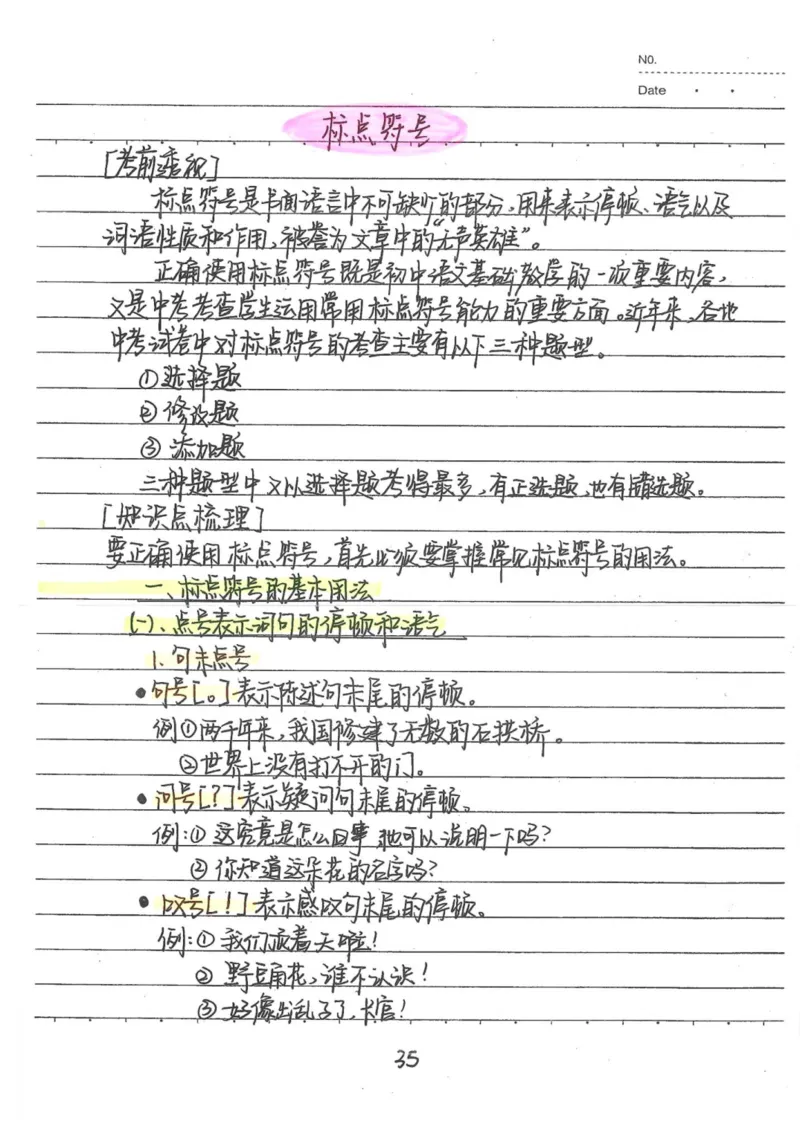 NO.
Date
标点符号
[考前透视]
标点符号是书面语言中不可缺少的部分,用来表示停顿、语气以及
词语性质和作用,被誉为文章中的“无声英雄”。
正确使用标点符号既是初中语文基础教学的一项重要内容,
又是中考考查学生运用常用标点符号能力的重要方面。近年来,各地
中考试卷中对标点符号的考查主要有以下三种题型。
①选择题
②修改题
③添加题
三种题型中又以选择题考得最多,有正选题,也有错选题。
[知识点梳理]
要正确使用标点符号,首先必须要掌握常见标点符号的用法。
一、标点符号的基本用法
(一)、点号表示词句的停顿和语气
1.句末点号
•句号[。]表示陈述句末尾的停顿。
例①两千年来,我国修建了无数的石拱桥。
②世界上没有打不开的门。
•问号[?]表示疑问句末尾的停顿。
例:①这究竟是怎么回事,她可以说明一下吗?
②你知道这朵花的名字吗?
•叹号[!]表示感叹句末尾的停顿。
例:①我们顶着天啦!
②野豆角花,谁不认识!
③好像出乱子了,长官!
35